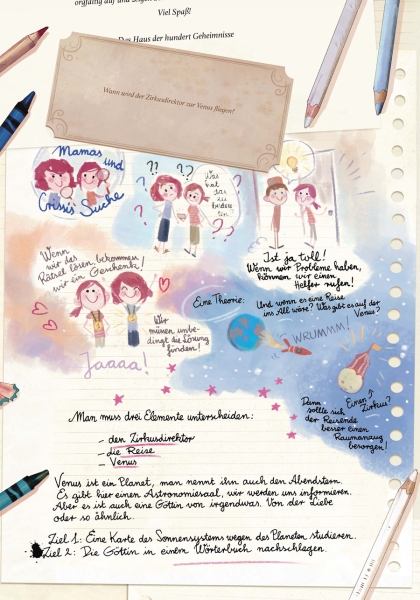 orgfältig auf und
Viel Spaß!
Das Haus der hundert Geheimnisse
Wann wird der Zirkusdirektor zur Venus fliegen?
Mamas
und
Crissis Suche
??
??
Was
hat
das
zu
bedeu
ten
Ist ja toll!
Wenn wir Probleme haben,
können wir einen
Helfer rufen!
Wenn
wir das
Rätsel lösen, bekommen
wir ein Geschenk!
Wir
müssen unbe-
dingt die Lösung
finden!
Jaaaa!
Eine Theorie:
Und wenn es eine Reise
ins All wäre? Was gibt es auf der
Venus?
WRUMMM!
Einen
Zirkus?
Dann
sollte sich
der Reisende
besser einen
Raumanzug
besorgen!
Man muss drei Elemente unterscheiden:
- den Zirkusdirektor
- die Reise
- Venus
Venus ist ein Planet, man nennt ihn auch den Abendstern.
Es gibt hier einen Astronomiesaal, wir werden uns informieren.
Aber es ist auch eine Göttin von irgendwas. Von der Liebe
oder so ähnlich.
Ziel 1: Eine Karte des Sonnensystems wegen des Planeten studieren.
Ziel 2: Die Göttin in einem Wörterbuch nachschlagen.